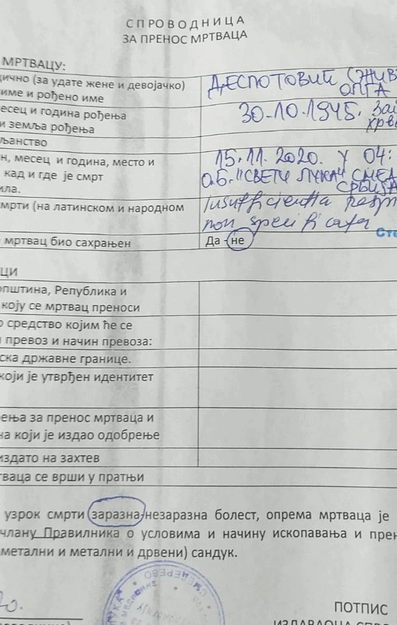 СПРОВОДНИЦА
ЗА ПРЕНОС МРТВАЦА
МРТВАЦУ:
ично (за удате жене и девојачко)
ДЕСПОТОВИЋ (ЖИВ
име и рођено име
ОЛГА
есец и година рођења
30.10.1945.
и земља рођења
љанство
н, месец и година, место и
15.11.2020. у 04:
кад и где је смрт
О.Б. "СВЕТИ ЛУКА" СМЕД
ила.
СРБИЈА
мрти (на латинском и народном
Insufficientia
non specificata
мртвац био сахрањен
Да - не
ЦИ
општина, Република и
коју се мртвац преноси
о средство којим ће се
превоз и начин превоза:
ска државне границе.
који је утврђен идентитет
ења за пренос мртваца и
на који је издао одобрење
издато на захтев
тваца се врши у пратњи
узрок смрти (заразна-незаразна болест, опрема мртваца је
члану Правилника о условима и начину ископавања и прен
метални и метални и дрвени) сандук.
ПОТПИС